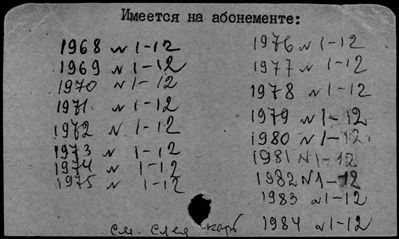 Имеется на абонементе:
1968 N 1-12
1969 N 1-12
1970 N 1-12
1971 N 1-12
1972 N 1-12
1973 N 1-12
1974 N 1-12
1975 N 1-12
1976 N 1-12
1977 N 1-12
1978 N 1-12
1979 N 1-12
1980 N 1-12
1981 N 1-12
1982 N 1-12
1983 N 1-12
1984 N 1-12
см. след карт